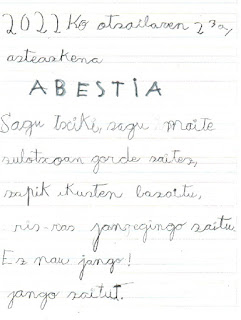 2022 ko otsailaren 23a,
asteaskena
ABESTIA
Sagu txiki, sagu maite
sulotxoan gorde saites,
sapik ikusten basaitu,
ris-ras jangegingo saitu.
Es nau jango!
jango saitut.